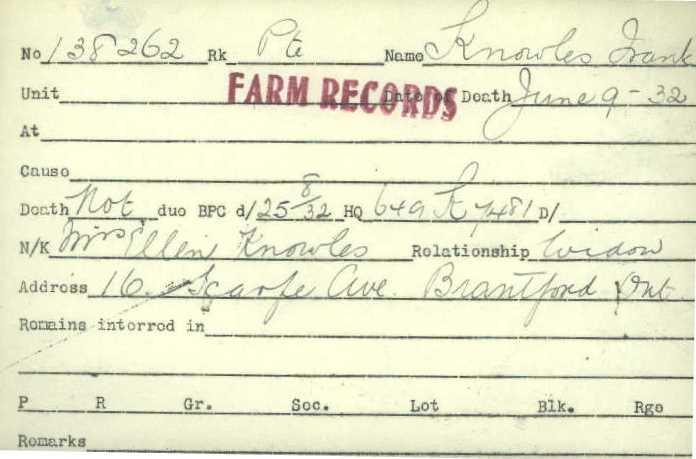 No 138262 Rk Pte Name Knowles Frank
Unit FARM RECORDS Date of Death June 9-32
At
Cause
Death Not due BPC d/25 8/32 HQ 649 K 7481 D/
N/K Mrs Ellen Knowles Relationship Widow
Address 16 Scarfe Ave. Brantford Ont.
Remains interred in
P R Gr. Sec. Lot Blk. Rge
Remarks